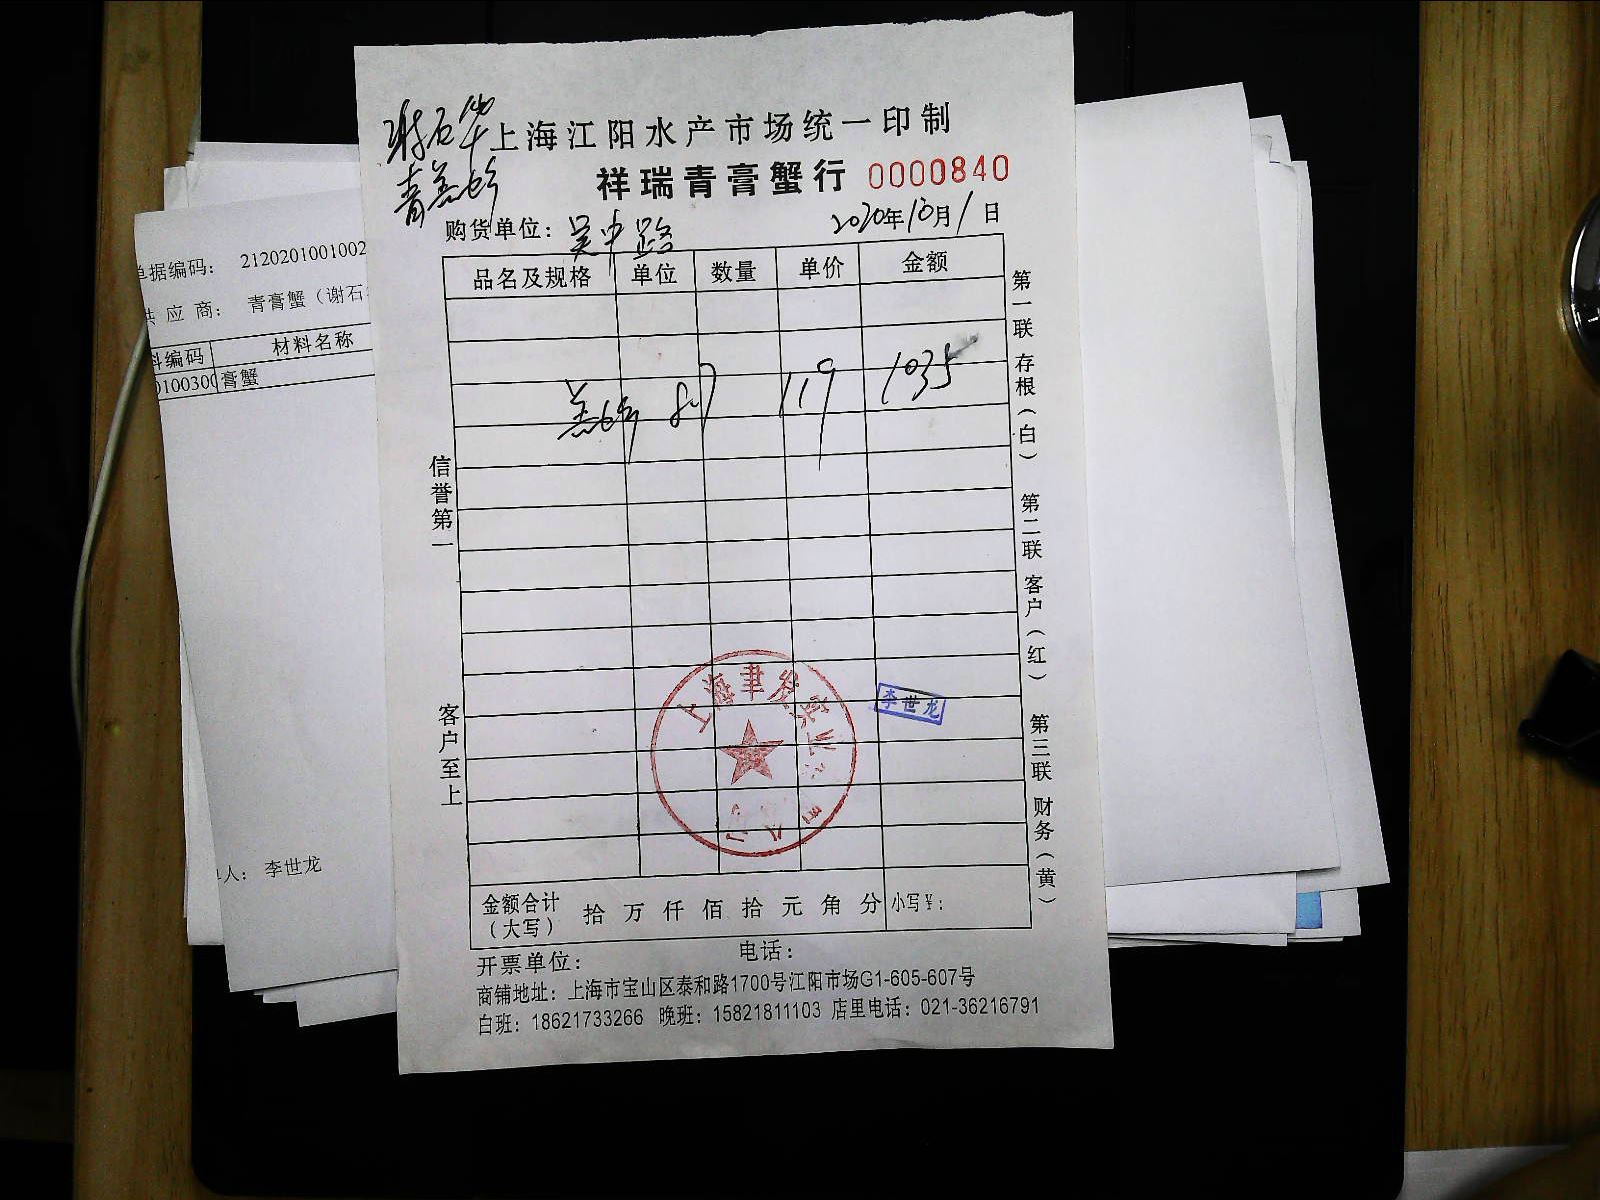 谢石华
青羔蟹
上海江阳水产市场统一印制
祥瑞青膏蟹行 0000840
购货单位：吴中路 2020年10月1日
品名及规格 单位 数量 单价 金额
羔蟹 8.7 119 1035
信誉第一
客户至上
第一联 存根（白） 第二联 客户（红） 第三联 财务（黄）
上海聿发实业
公司
李世龙
金额合计（大写） 拾 万 仟 佰 拾 元 角 分 小写￥：
开票单位： 电话：
商铺地址：上海市宝山区泰和路1700号江阳市场G1-605-607号
白班：18621733266 晚班：15821811103 店里电话：021-36216791
单据编码： 2120201001002
供 应 商： 青膏蟹（谢石
料编码 材料名称
0100300 膏蟹
人： 李世龙